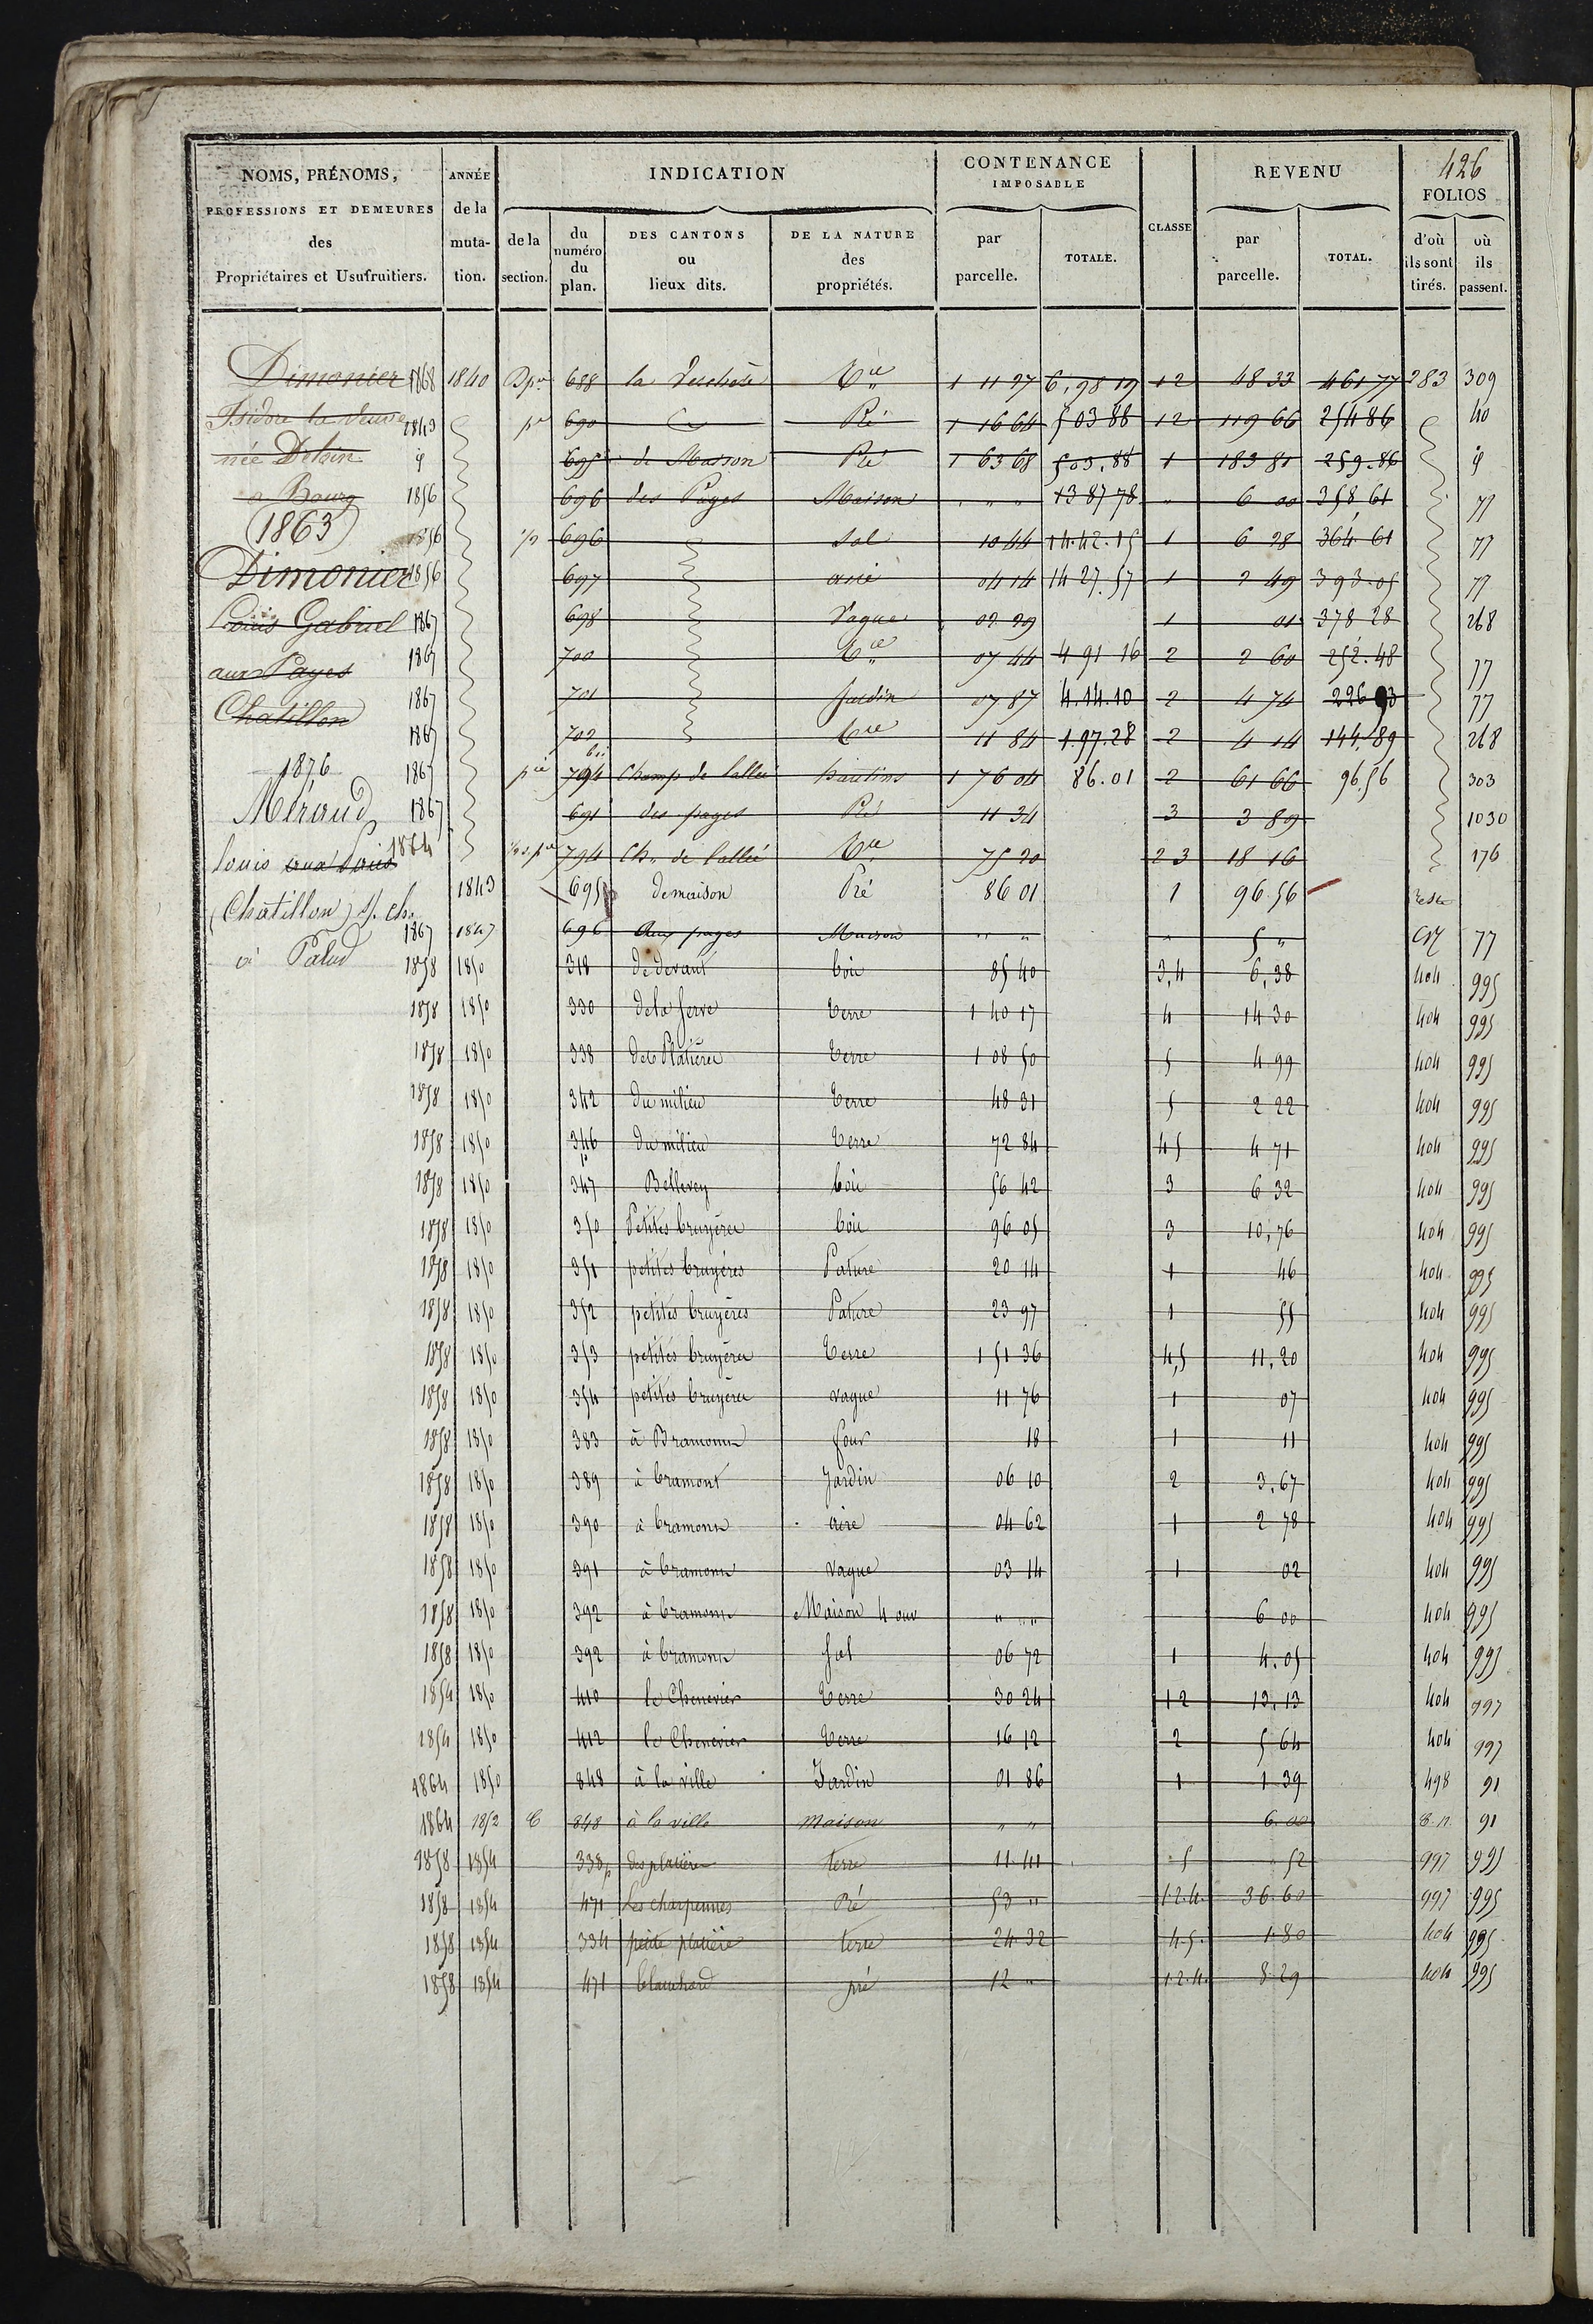 426
NOMS, PRÉNOMS, PROFESSIONS ET DEMEURES des Propriétaires et Usufruitiers.
ANNÉE de la muta- tion.
INDICATION
de la section.
du numéro du plan.
DES CANTONS ou lieux dits.
DE LA NATURE des propriétés.
CONTENANCE IMPOSABLE
par parcelle.
TOTALE.
CLASSE
REVENU
par parcelle.
TOTAL.
FOLIOS
d'où ils sont tirés.
où ils passent.
Dimonier 1868 1840 688 la 1 11 27 6,98 19 12 48 33 461 77 283 309
Isidore la Veuve 1843 690 Pré 1 16 64 503 88 12 119 66 254 86 40
née 695 de Maison Pré 1 63 68 503,88 1 183 81 259.86
a Bourg 1856 696 des Pages Maison " " " 1387 78 " 6 00 358,61 77
(1863) 1856 696 Sol 10 44 14.42.15 1 6 28 364 61 77
Dimonier 1856 697 aire 04 14 14 27.57 1 2 49 393.05 77
Louis Gabriel 1867 698 Vague 02 29 1 01 378 28 268
aux Payes 1867 700 07 44 4 91 16 2 2 60 252.48 77
Chatillon 1867 701 Jardin 07 87 4.14.10 2 4 74 226 93 77
1867 702 11 84 1.97.28 2 4 14 144.89 268
1876 1867 794 bis Champ de l'allée hautins 1 76 04 86.01 2 61 66 96.56 303
Méraud 1867 691 des pages Pré 11 34 3 3 89 1030
louis 1864 794 Ch. de l'allée 75 20 2 3 18 16 176
Chatillon s/. ch. 1843 695p de maison Pré 86 01 1 96.56 reste
à Palud 1867 1847 696 Aux pages Maison " " " 5 " 77
1858 1850 318 de devant bois 85 40 3,4 6,38 404 995
1858 1850 330 de la Serve terre 1 40 17 4 14 30 404 995
1858 1850 338 des Platières terre 1 08 50 5 4 99 404 995
1858 1850 342 du milieu terre 48 31 5 2 22 404 995
1858 1850 346 p du milieu terre 72 84 4 5 4 71 404 995
1858 1850 347 Bellevey bois 56 42 3 6 32 404 995
1858 1850 350 Petites bruyères bois 96 05 3 10,76 404 995
1858 1850 351 petites bruyères Pature 20 14 1 46 404 995
1858 1850 352 petites bruyères Pature 23 97 1 55 404 995
1858 1850 353 petites bruyères terre 1 51 36 4,5 11,20 404 995
1858 1850 354 petites bruyères vague 11 76 1 07 404 995
1858 1850 383 à Bramont four 18 1 11 404 995
1858 1850 389 à bramont Jardin 06 10 2 3.67 404 995
1858 1850 390 à bramont aire 04 62 1 2 78 404 995
1858 1850 391 à bramont vague 03 14 1 02 404 995
1858 1850 392 à bramont Maison 4 ouv " " " 6 00 404 995
1858 1850 392 à bramont Sol 06 72 1 4.05 404 995
1854 1850 410 le Chenevier terre 30 24 1 2 13,13 404 997
1854 1850 412 le Chenevier terre 16 12 2 5 64 404 997
1864 1850 848 à la ville Jardin 01 86 1 1 39 498 91
1864 1852 C 848 à la ville maison " " 6.00 C.n. 91
1858 1854 338p des platières terre 11 41 5 52 997 995
1858 1854 471 les charpennes Pré 53 " 1.2.4. 36.60 997 995
1858 1854 334 petite platière terre 24 32 4.5. 1.80 404 995
1858 1854 471 blanchard pré 12 " 1.2.4. 8.29 404 995